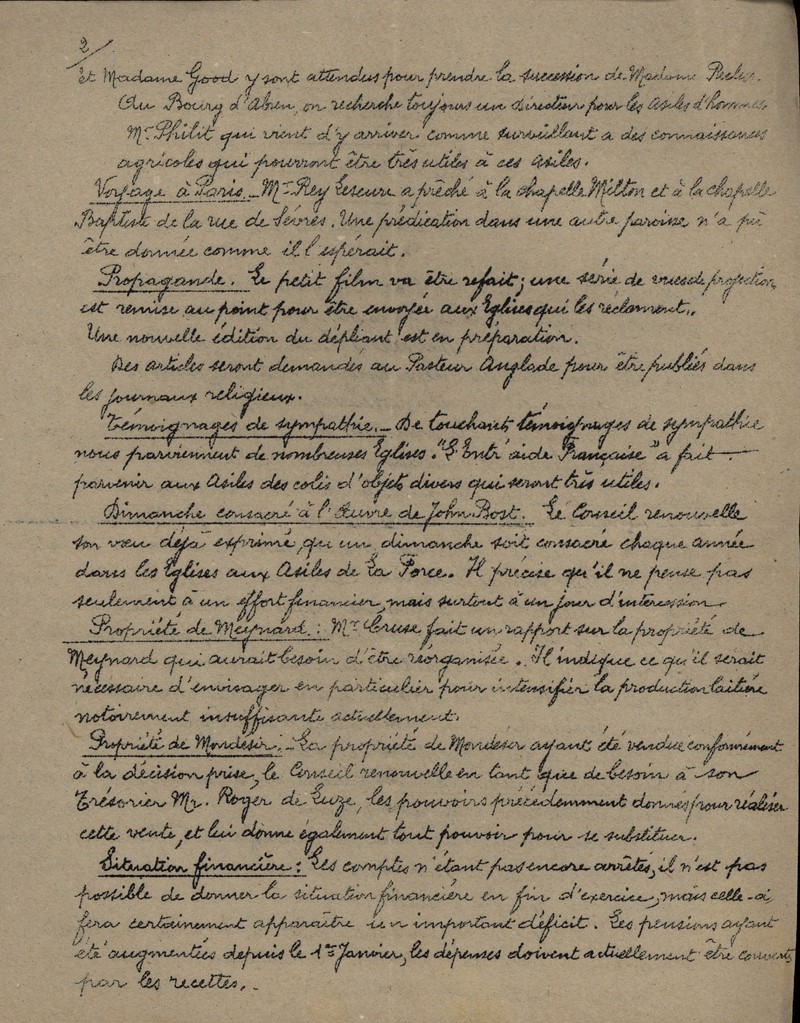 2/
et Madame Good y sont attendus pour prendre la succession de Madame Reclus.
Au Bourg d'Abren, on recherche toujours un Directeur pour les Asiles d'hommes
Mr Philit qui vient d'y arriver comme surveillant a des connaissances
agricoles qui pourront être très utiles à ces asiles.
Voyage à Paris._ Mr Rey Lescure a prêché à la chapelle Milton et à la chapelle
Baptiste de la rue de Sèvres. Une prédication dans une autre paroisse n'a pu
être donnée comme il l'espérait.
Propagande. Le petit film va être refait; une série de vues de projection
est remise au point pour être envoyée aux Eglises qui les réclament.
Une nouvelle édition du dépliant est en préparation.
Des articles seront demandés au Pasteur Anglade pour être publiés dans
les journaux religieux.
Témoignages de sympathie._ De touchants témoignages de sympathie
nous parviennent de nombreuses Eglises. "L'Entr'aide Française" a fait
parvenir aux Asiles des colis d'objets divers qui seront très utiles.
Dimanche consacré à l'Œuvre de John Bost. Le Conseil renouvelle
son vœu déjà exprimé, qu'un dimanche soit consacré chaque année
dans les Eglises aux Asiles de La Force. Il précise qu'il ne pense pas
seulement à un effort financier, mais surtout à un jour d'intercession.
Propriété de Meynard: Mr Cruse fait un rapport sur la propriété de
Meynard qui aurait besoin d'être réorganisée. Il indique ce qu'il serait
nécessaire d'envisager en particulier pour intensifier la production laitière
notoirement insuffisante actuellement.
Propriété de Mondésir:_ La propriété de Mondésir ayant été vendue conformément
à la décision prise, le Conseil renouvelle en tant que de besoin à son
Trésorier Mr. Roger de Luze, les pouvoirs précédemment donnés pour réaliser
cette vente, et lui donne également tout pouvoir pour se substituer.
Situation financière: Les comptes n'étant pas encore arrêtés, il n'est pas
possible de donner la situation financière en fin d'exercice, mais celle-ci
fera certainement apparaître un important déficit. Les pensions ayant
été augmentées depuis le 1er Janvier, les dépenses doivent actuellement être couvertes
par les recettes._